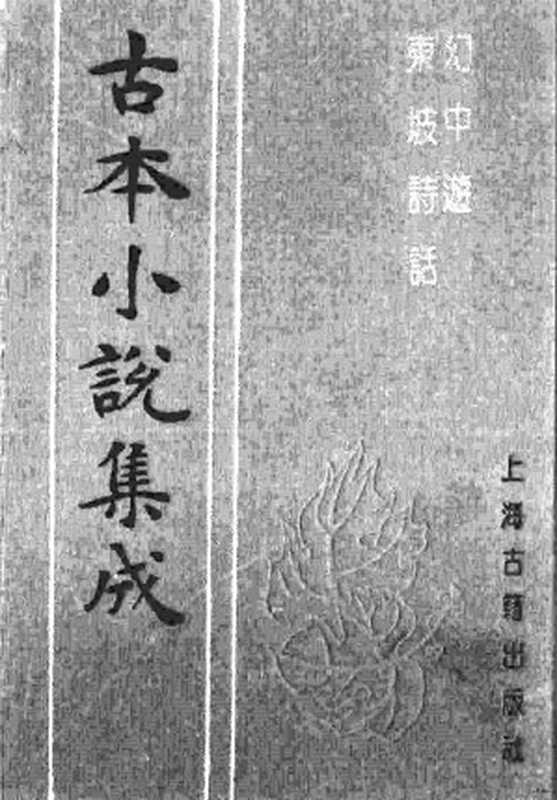 幻中遊
東坡詩話
上海古籍出版社
古本小說集成